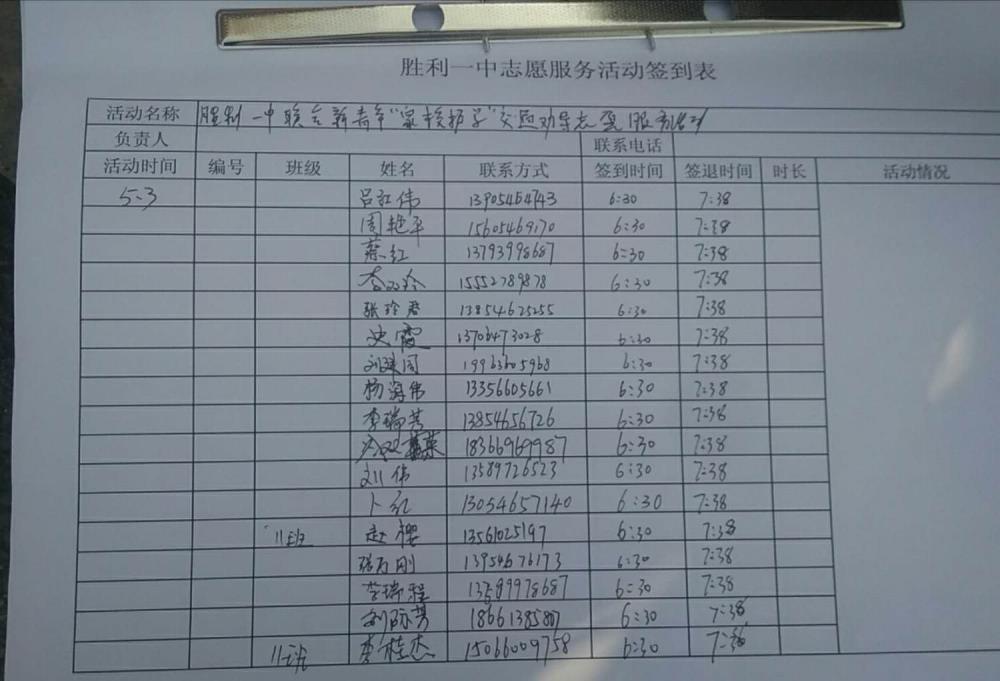 胜利一中志愿服务活动签到表
活动名称 胜利一中联合新青年"家校护学"交通劝导志愿服务活动
负责人 联系电话
活动时间 编号 班级 姓名 联系方式 签到时间 签退时间 时长 活动情况
5.3 吕红伟 13905464743 6:30 7:38
周艳平 15605469170 6:30 7:38
蔡红 13793998687 6:30 7:38
15552789878 6:30 7:38
张玲君 13854625255 6:30 7:38
史霞 13706473028 6:30 7:38
6:30 7:38
杨海伟 13356605661 6:30 7:38
李瑞芳 13854656726 6:30 7:38
18366969987 6:30 7:38
刘伟 13589726523 6:30 7:38
卜红 13054657140 6:30 7:38
11班 赵樱 13561025197 6:30 7:38
张万刚 13954676173 6:30 7:38
李瑞程 6:30 7:38
刘际芳 6:30 7:38
11班 李桂杰 15066009758 6:30 7:38